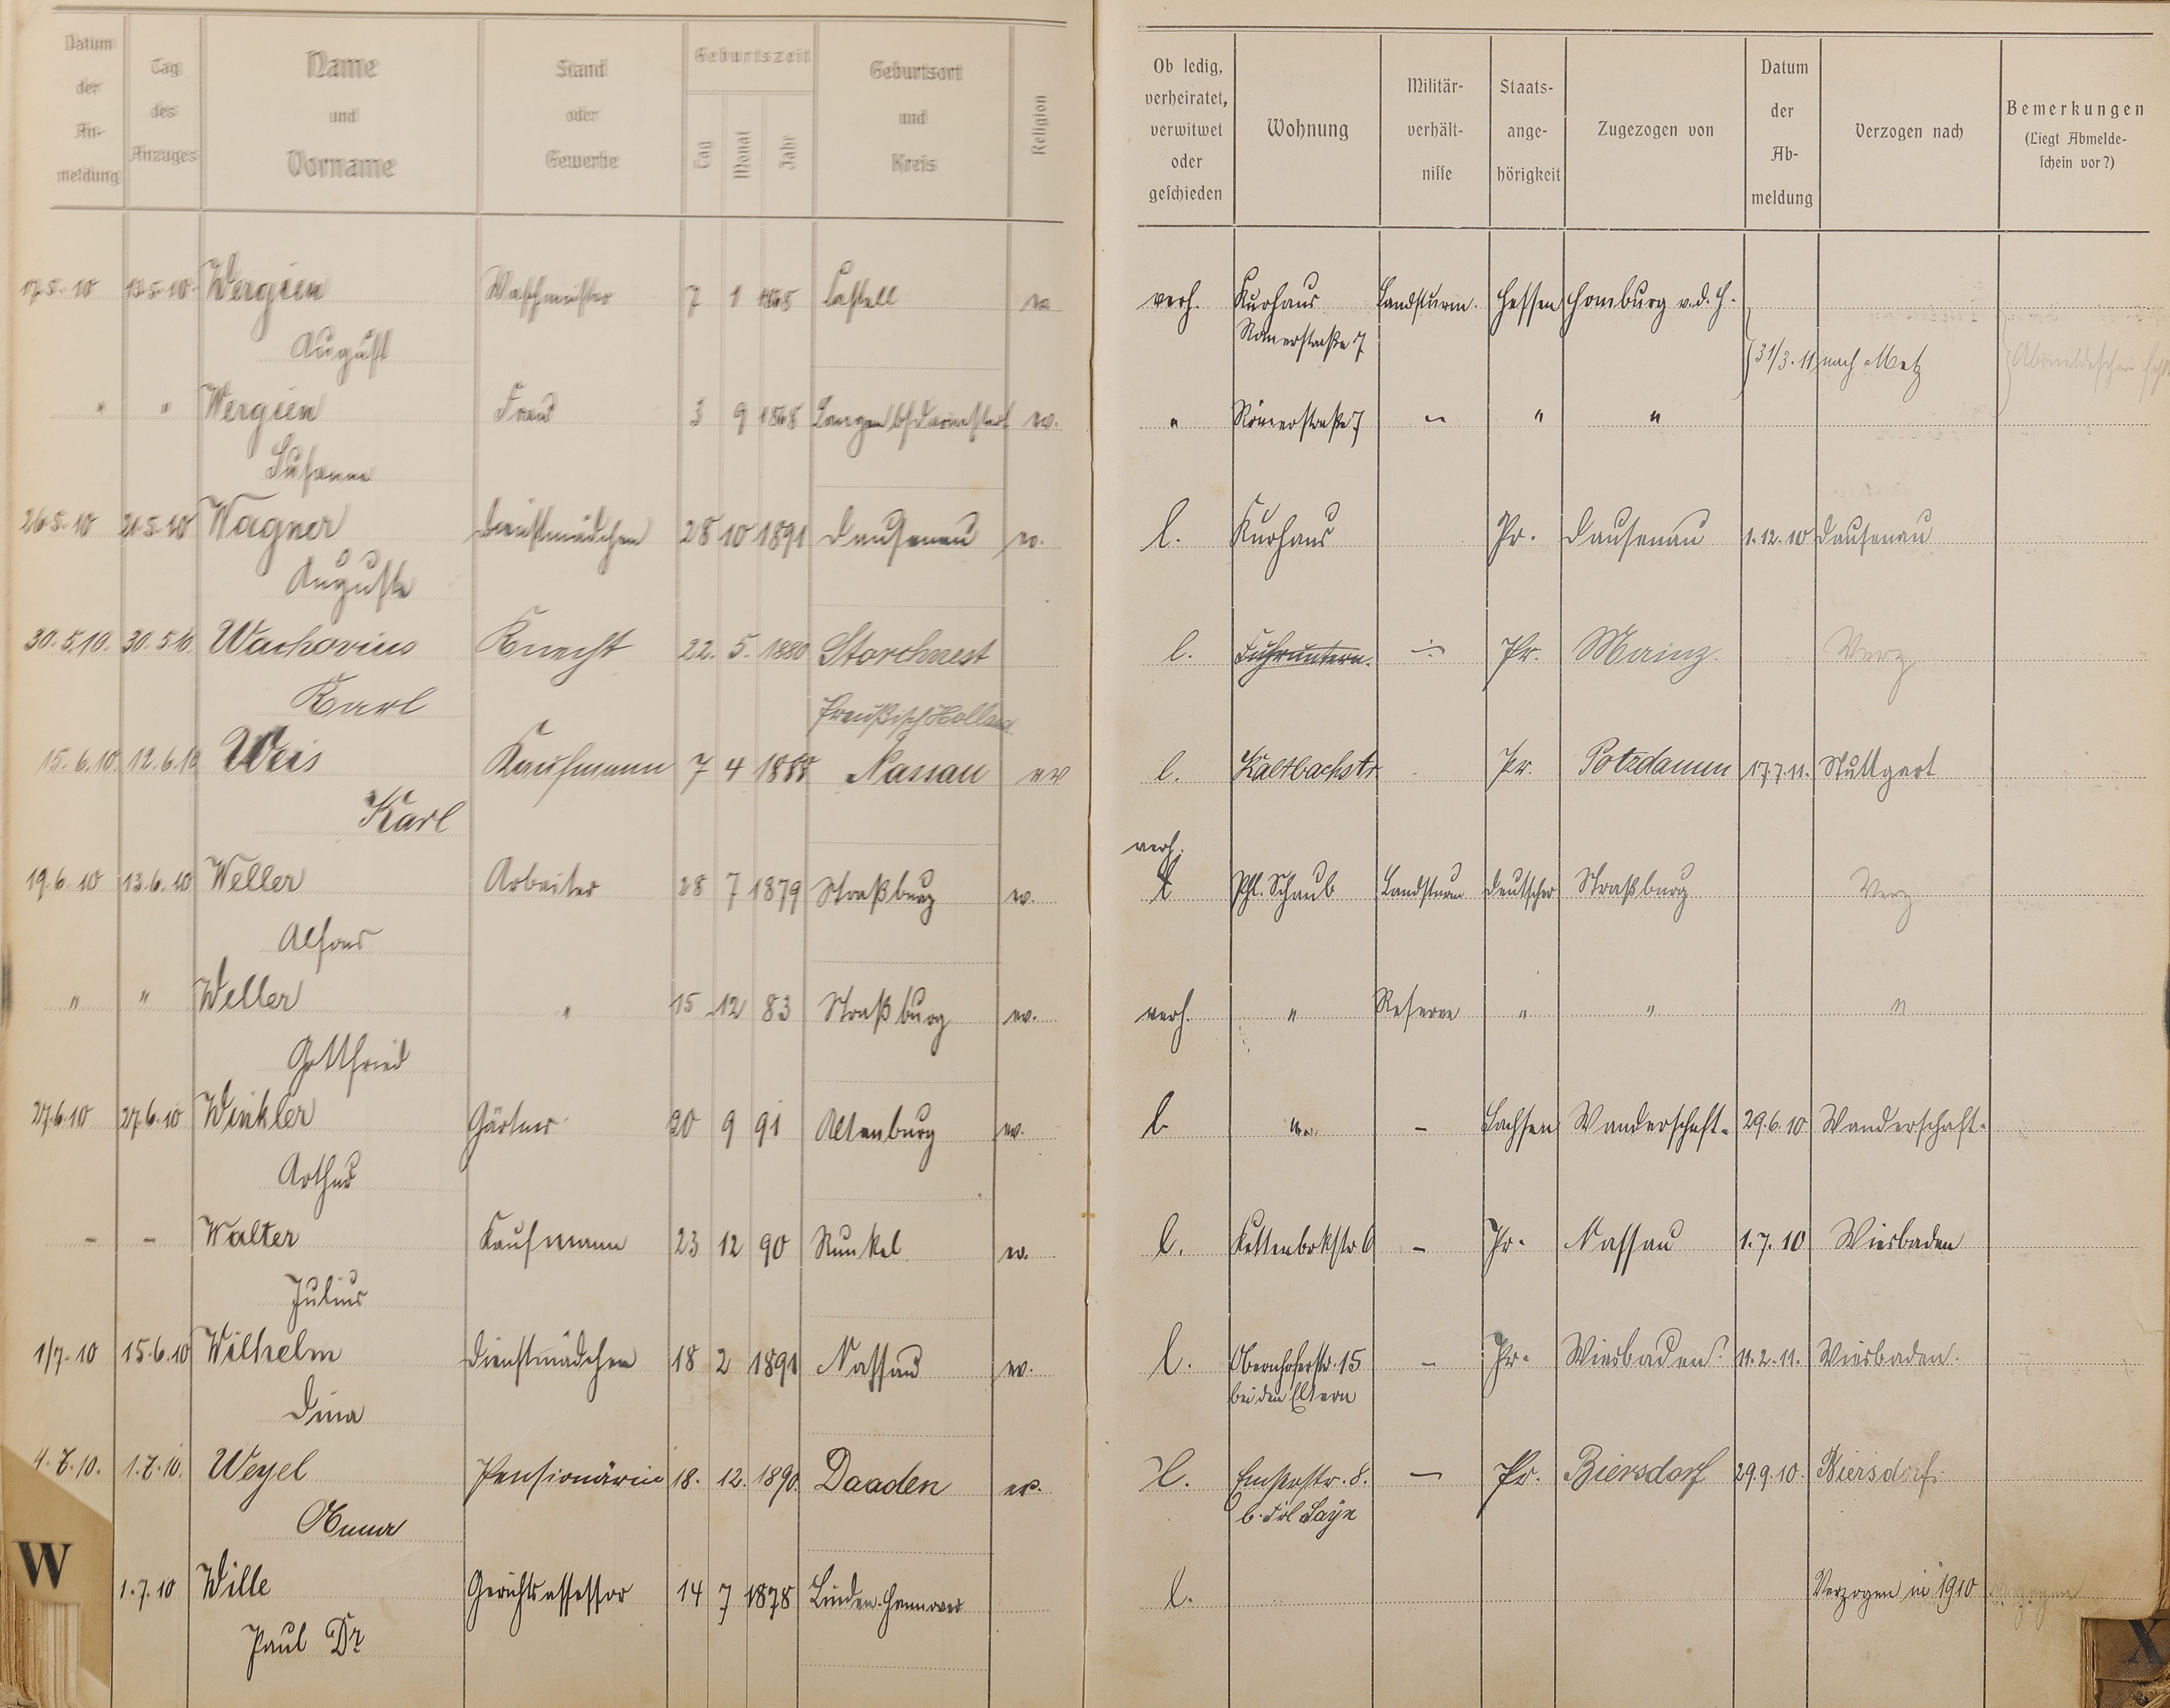 Datum der An-meldung | Tag des Anzuges | Name und Vorname | Stand oder Gewerbe | Geburtszeit Tag Monat Jahr | Geburtsort und Kreis | Religion | Ob ledig, verheiratet, verwitwet oder geschieden | Wohnung | Militär-verhält-nisse | Staats-ange-hörigkeit | Zugezogen von | Datum der Ab-meldung | Verzogen nach | Bemerkungen (Liegt Abmelde-schein vor?)
17.5.10 13.5.10 Wergien 7 1 1868 Castell ev. verh. Kurhaus Landsturm. Hessen Homburg v.d.H.
August Römerstraße 7 31/3.11 nach Metz Abmeldeschein
" " Wergien Frau 3 9 1868 Langen b/Darmstadt ev. " Römerstraße 7 – " "
Susanna
26.5.10 21.5.10 Wagner Dienstmädchen 28 10 1891 Dausenau ev. l. Kurhaus Pr. Dausenau 1.12.10 Dausenau
Auguste
30.5.10. 30.5.10. Wachovius Knecht 22. 5. 1880 Storchnest l. Fuhruntern. Pr. Mainz. Verz
Karl Preußisch Holland
15.6.10. 12.6.10 Weis Kaufmann 7 4 1888 Nassau ev l. Kaltbachstr. Pr. Potzdamm 17.7.11. Stuttgart
Karl
verh.
19.6.10 13.6.10 Weller Arbeiter 28 7 1879 Straßburg ev. l Phl. Schaub Landsturm Deutscher Straßburg Verz
Alfons
" " Weller " 15 12 83 Straßburg ev. verh. " Reserve " " "
Gottfried
27.6.10 27.6.10 Winkler Gärtner 20 9 91 Altenburg ev. l. – Sachsen Wanderschaft. 29.6.10 Wanderschaft.
Arthur
– – Walter Kaufmann 23 12 90 Runkel ev. l. Kettenbrkstr. 6 – Pr. Nassau 1.7.10 Wiesbaden
Julius
1/7.10 15.6.10 Wilhelm Dienstmädchen 18 2 1891 Nassau ev. l. Obernhoferstr. 15 – Pr. Wiesbaden. 11.2.11. Wiesbaden.
Dina bei den Eltern
4.7.10. 1.7.10. Weyel Pensionärin 18. 12. 1890. Daaden ev. l. Emserstr. 8. – Pr. Biersdorf 29.9.10. Biersdorf.
b. Frl Sayn
W
1.7.10 Wille Gerichtsassessor 14 7 1878 Linden-Hannover l. Verzogen in 1910
Paul Dr
X